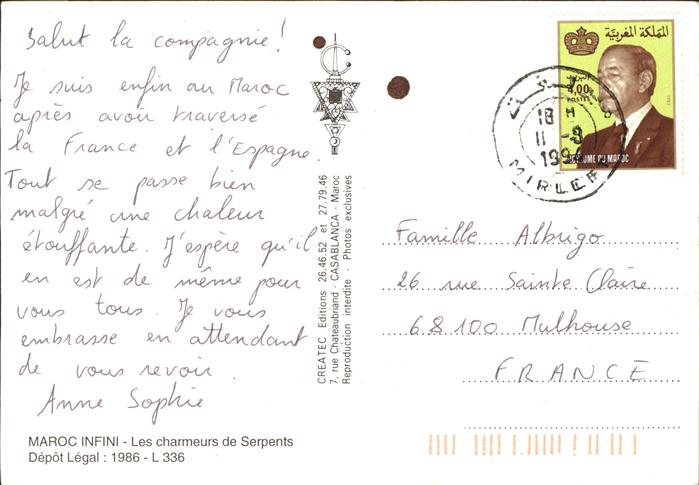 Salut la compagnie!
Je suis enfin au Maroc
après avoir traversé
la France et l'Espagne.
Tout se passe bien
malgré une chaleur
étouffante. J'espère qu'il
en est de même pour
vous tous. Je vous
embrasse en attendant
de vous revoir.
Anne Sophie
MAROC INFINI - Les charmeurs de Serpents
Dépôt Légal : 1986 - L 336
CREATEC Editions 26.46.52 et 27.79.46
7, rue Chateaubriand - CASABLANCA - Maroc
Reproduction interdite - Photos exclusives
المملكة المغربية
البريد
POSTES
ROYAUME DU MAROC
18 H
11 -9
MIRLEF
Famille Albrigo
26 rue Sainte Claire
68100 Mulhouse
FRANCE